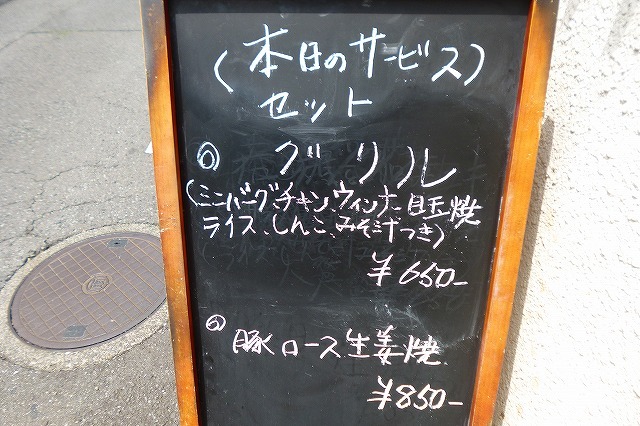 (本日のサービス)
セット
◎ グリル
(ミニバーグ、チキン、ウィンナー、目玉焼
ライス、しんこ、みそ汁つき)
¥650-
◎ 豚ロース生姜焼
¥850-